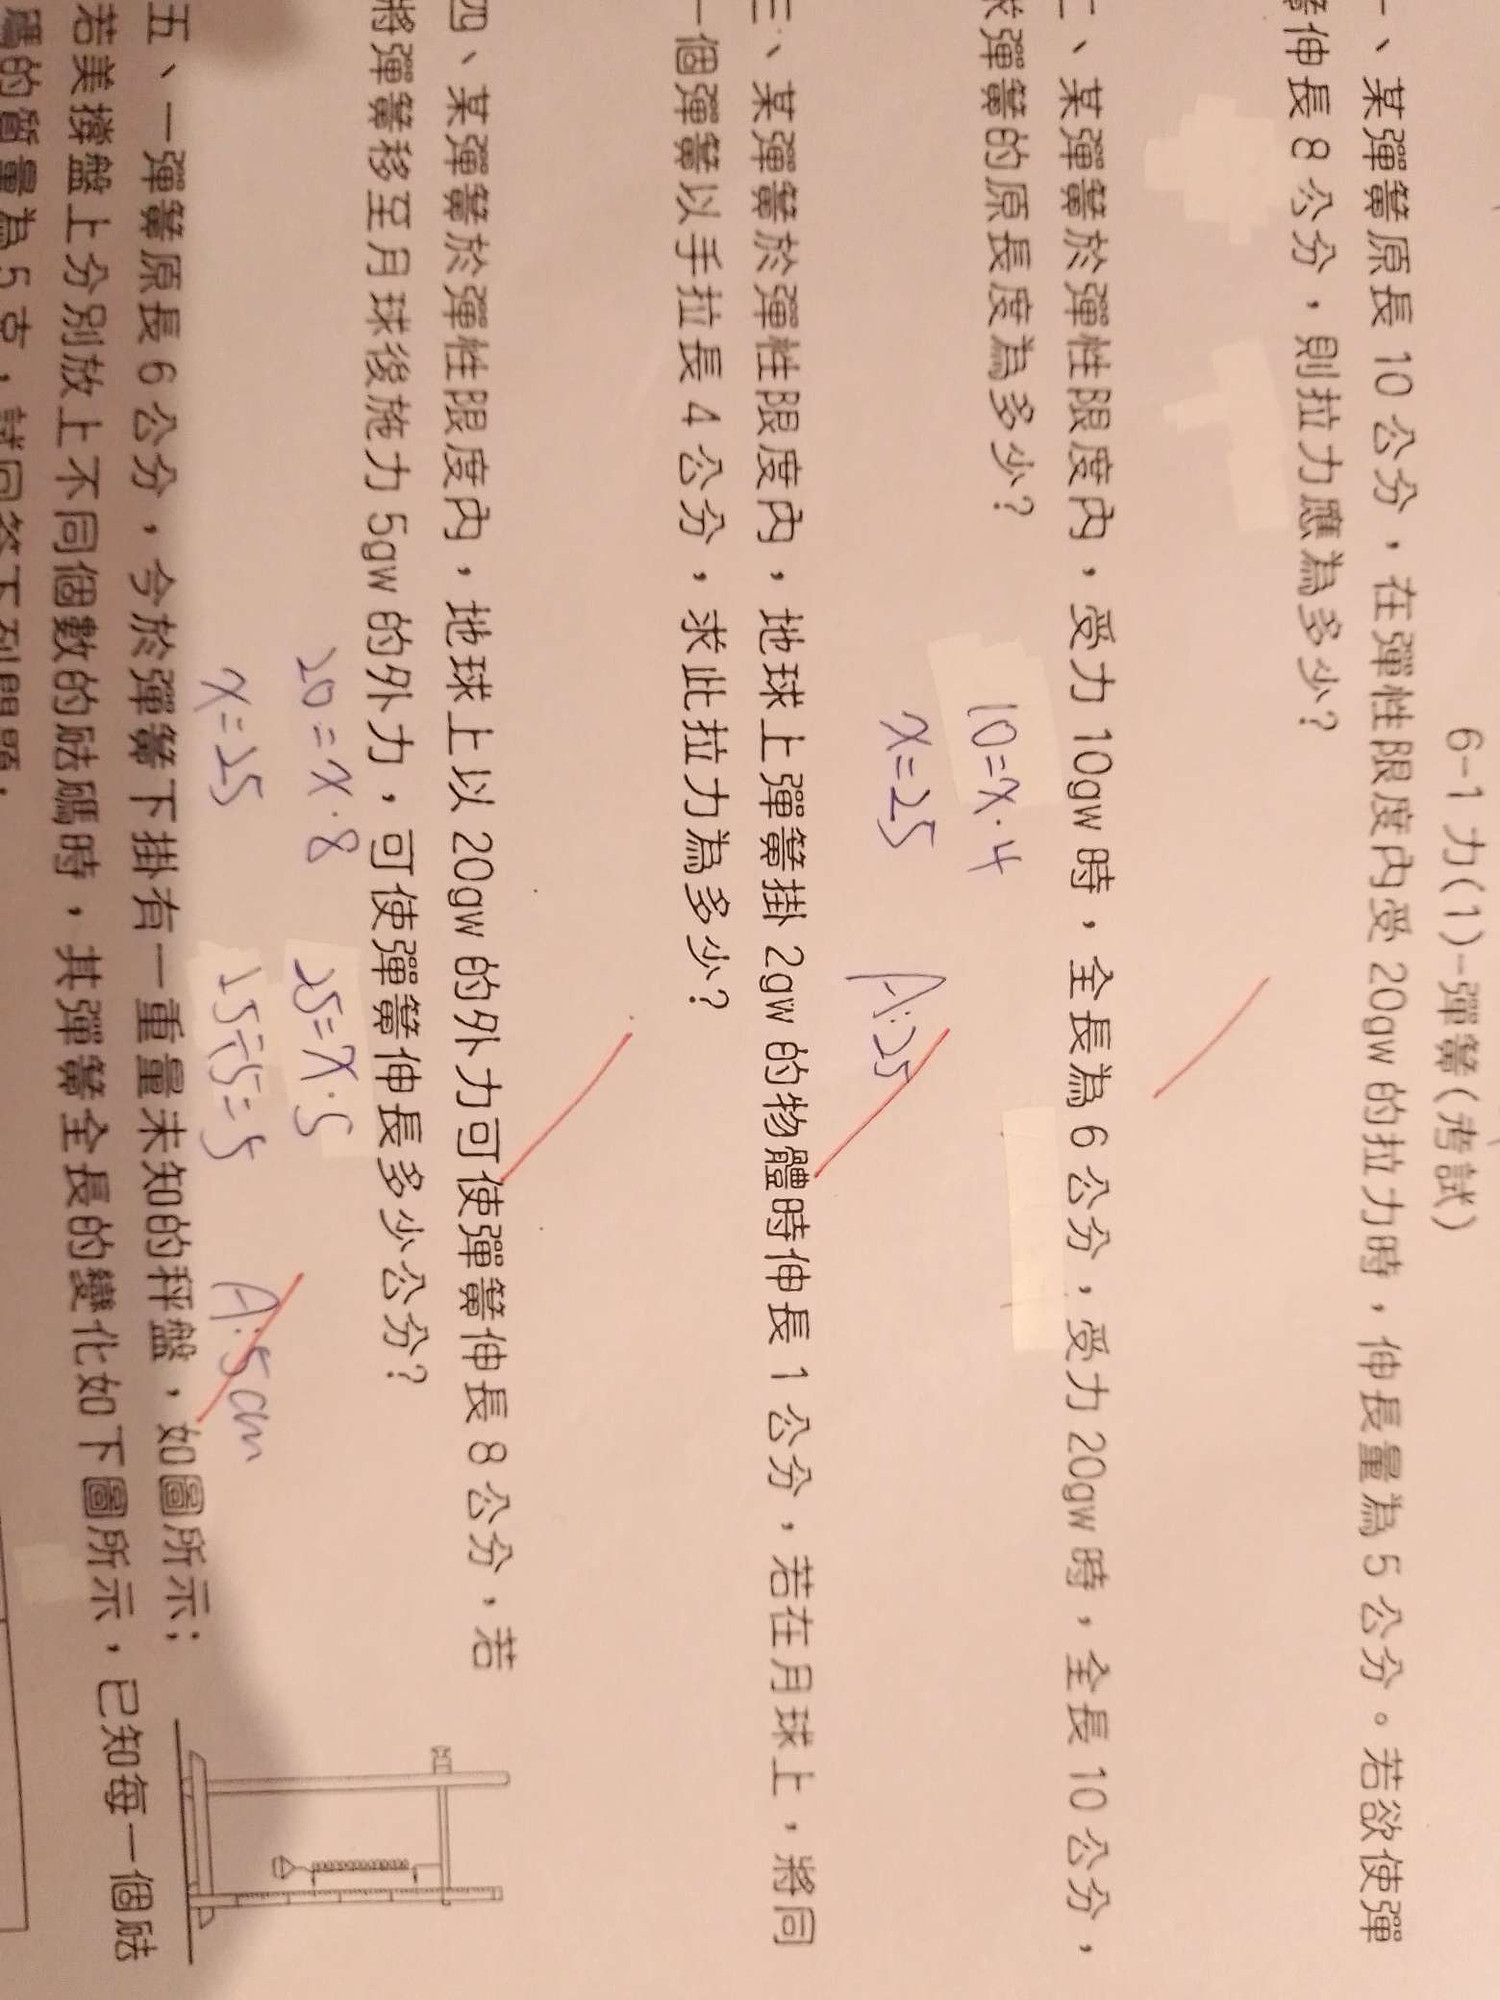 6-1力(1)-彈簧(考試)
一、某彈簧原長 10 公分，在彈性限度內受 20gw 的拉力時，伸長量為 5 公分。若欲使彈
簧伸長 8 公分，則拉力應為多少？
二、某彈簧於彈性限度內，受力 10gw 時，全長為 6 公分，受力 20gw 時，全長 10 公分，
求彈簧的原長度為多少？
10=x·4
x=25
A:25
三、某彈簧於彈性限度內，地球上彈簧掛 2gw 的物體時伸長 1 公分，若在月球上，將同
一個彈簧以手拉長 4 公分，求此拉力為多少？
四、某彈簧於彈性限度內，地球上以 20gw 的外力可使彈簧伸長 8 公分，若
將彈簧移至月球後施力 5gw 的外力，可使彈簧伸長多少公分？
20=x·8
x=25
25=x·5
A:5cm
五、一彈簧原長 6 公分，今於彈簧下掛有一重量未知的秤盤，如圖所示；
若美撐盤上分別放上不同個數的砝碼時，其彈簧全長的變化如下圖所示，已知每一個砝
碼的質量為 5 克，試回答下列問題：